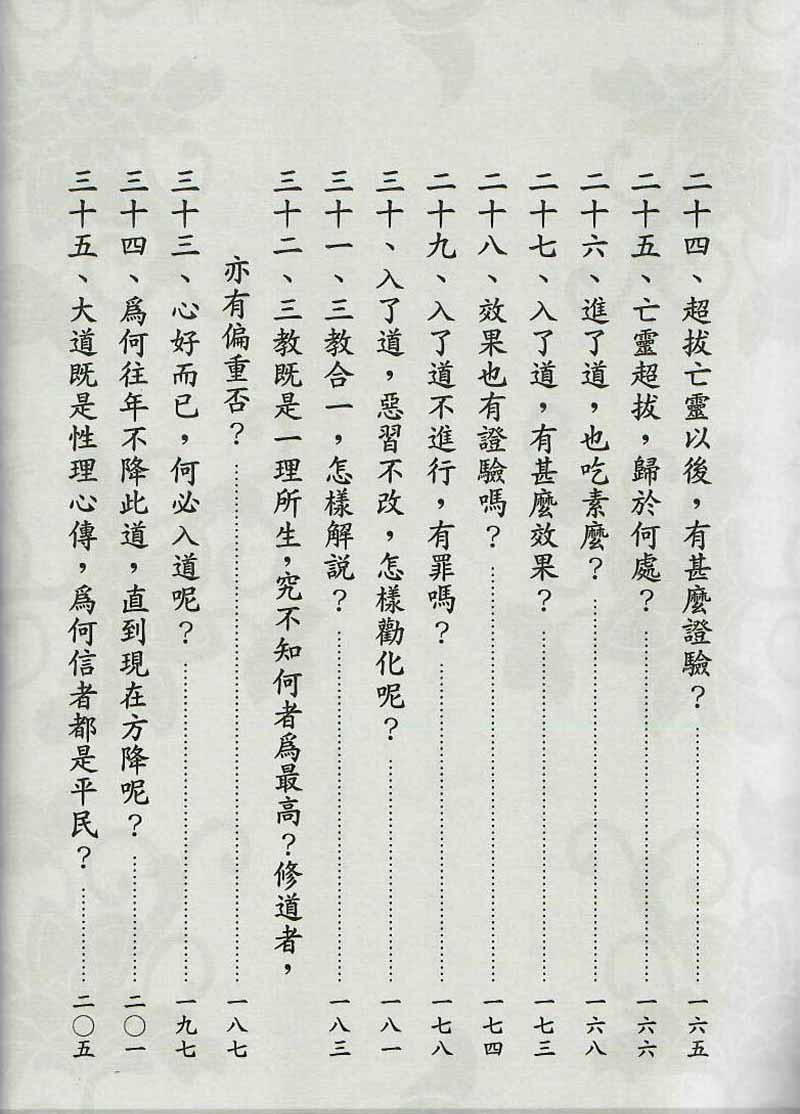 二十四、超拔亡靈以後，有甚麼證驗？……一六五
二十五、亡靈超拔，歸於何處？……一六六
二十六、進了道，也吃素麼？……一六八
二十七、入了道，有甚麼效果？……一七三
二十八、效果也有證驗嗎？……一七四
二十九、入了道不進行，有罪嗎？……一七八
三十、入了道，惡習不改，怎樣勸化呢？……一八一
三十一、三教合一，怎樣解説？……一八三
三十二、三教既是一理所生，究不知何者爲最高？修道者，
亦有偏重否？……一八七
三十三、心好而已，何必入道呢？……一九七
三十四、爲何往年不降此道，直到現在方降呢？……二〇一
三十五、大道既是性理心傳，爲何信者都是平民？……二〇五